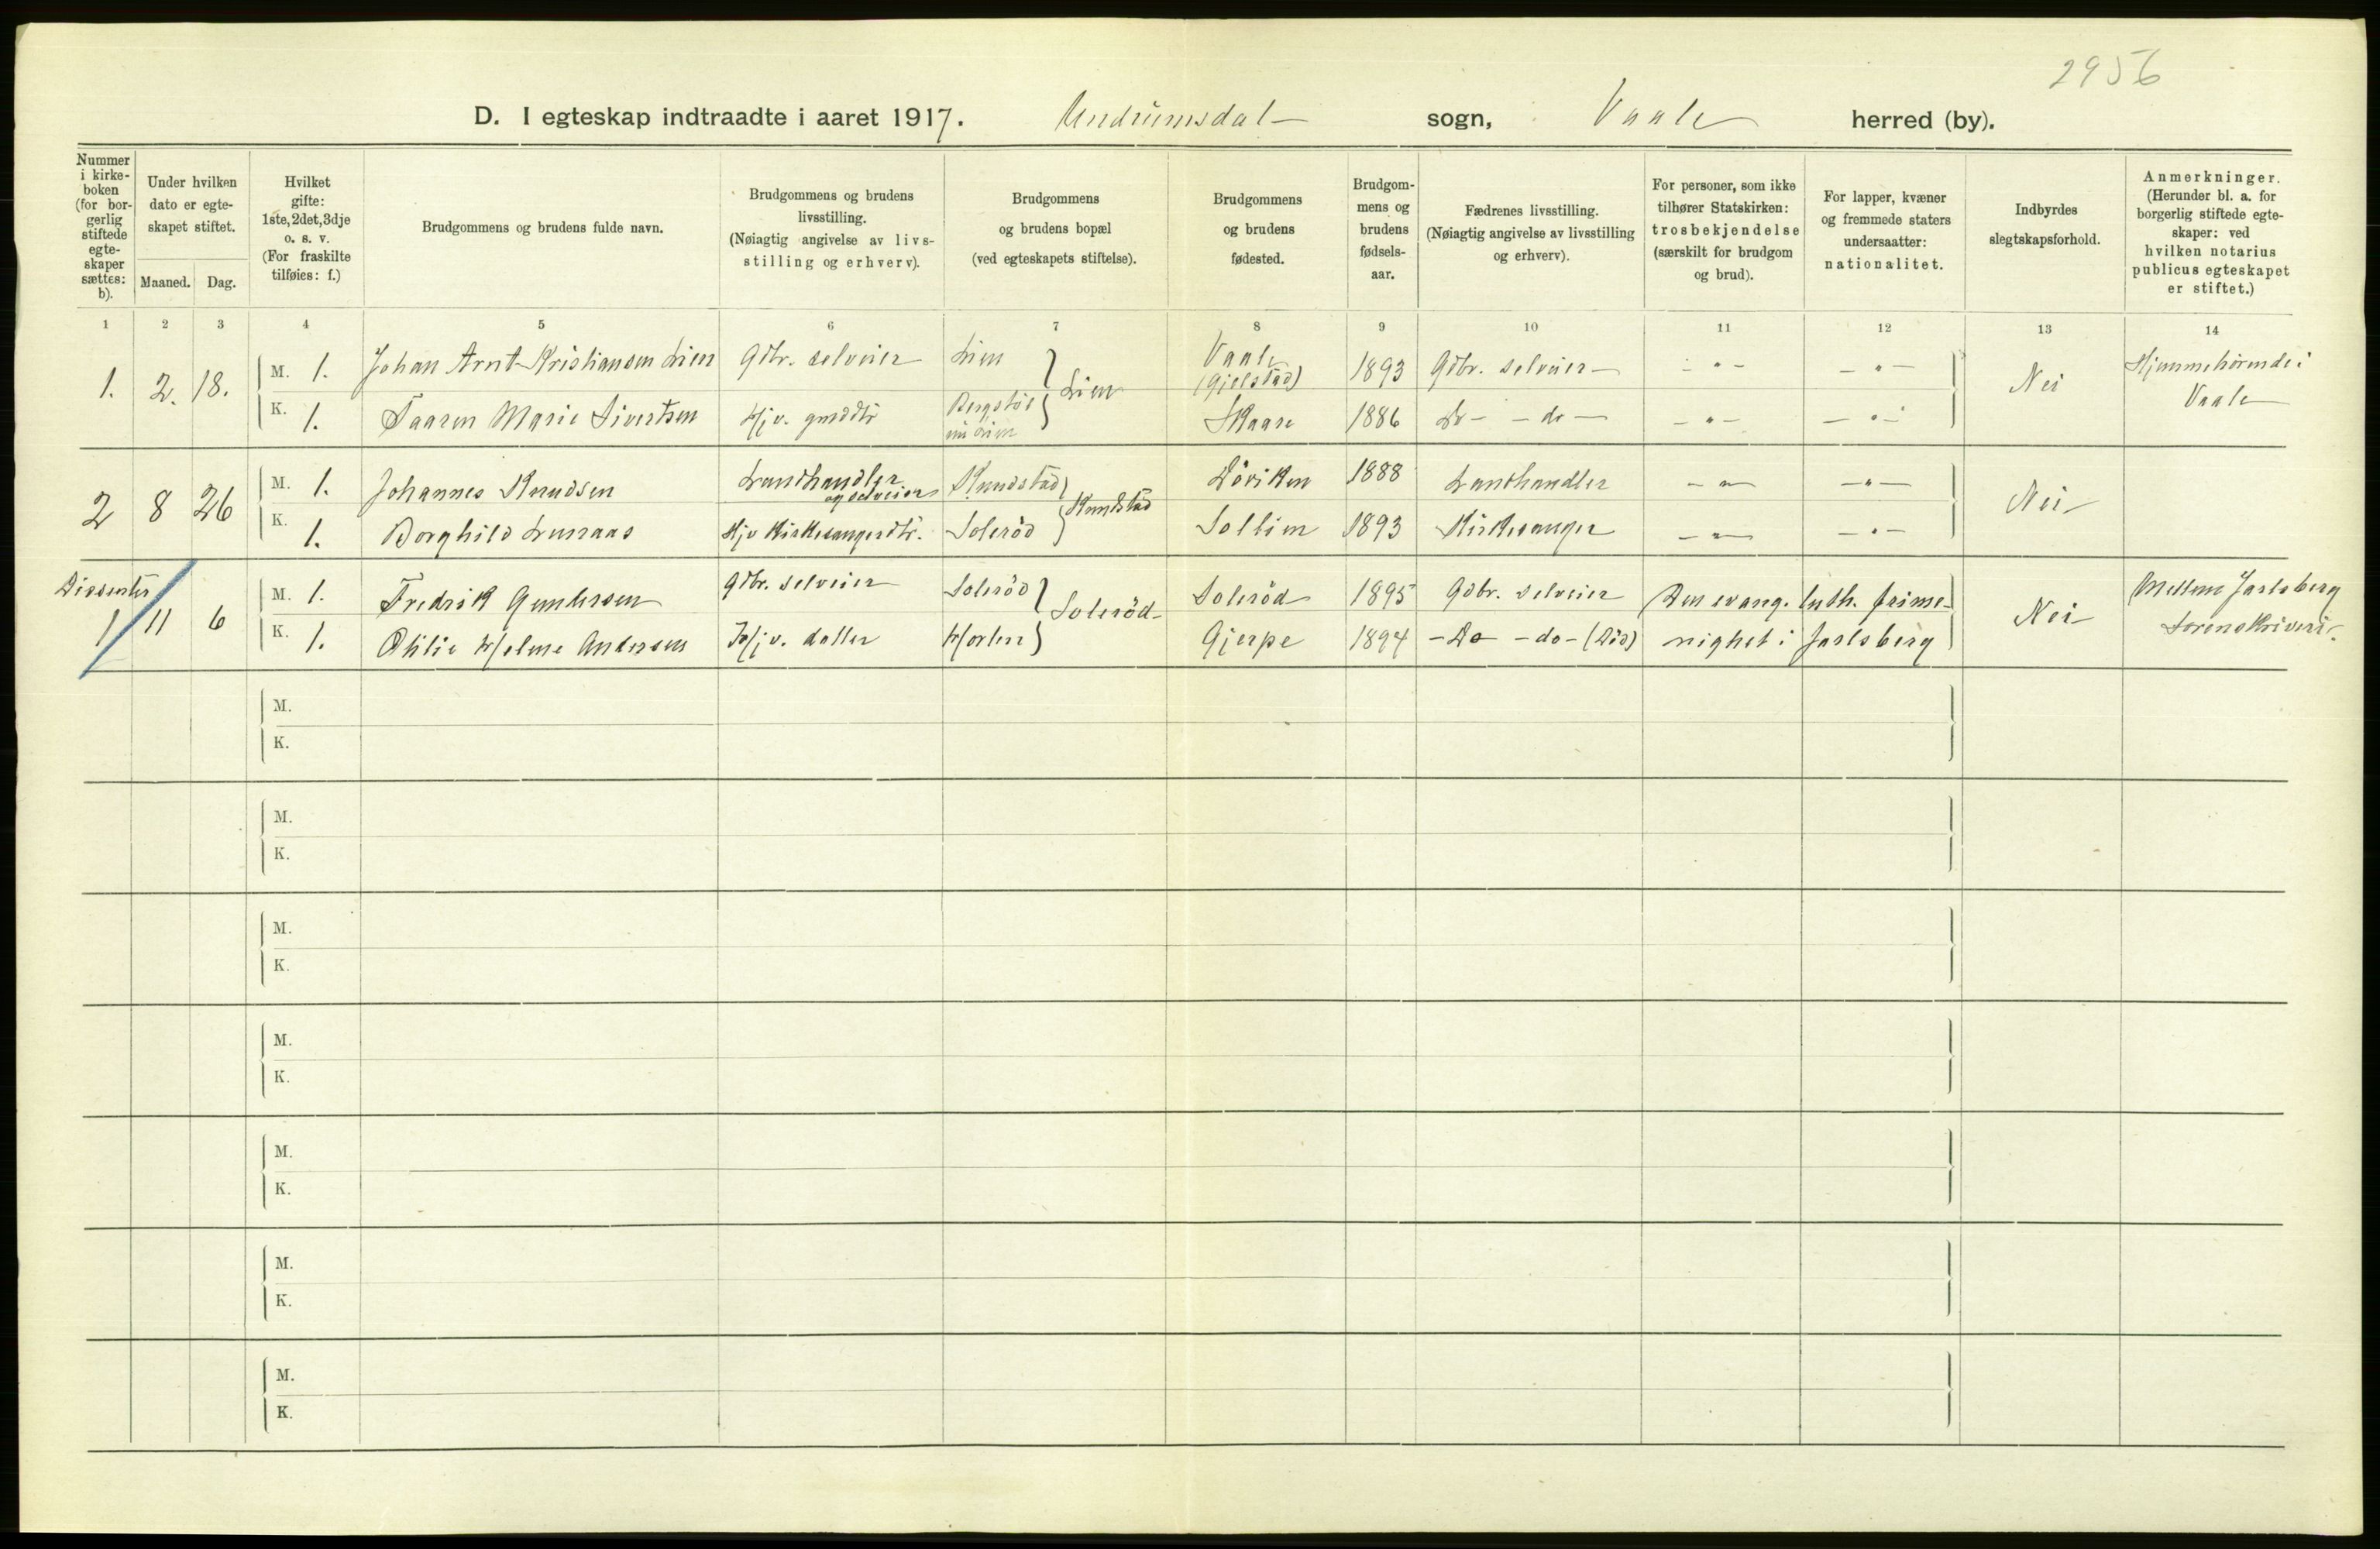 2956
D. I egteskap indtraadte i aaret 1917. Undrumsdal sogn, Vaale herred (by).
Nummer i kirke-boken (for bor-gerlig stiftede egte-skaper sættes: b).
Under hvilken dato er egte-skapet stiftet.
Maaned. Dag.
Hvilket gifte: 1ste, 2det, 3dje o. s. v. (For fraskilte tilføies: f.)
Brudgommens og brudens fulde navn.
Brudgommens og brudens livsstilling. (Nøiagtig angivelse av livs-stilling og erhverv).
Brudgommens og brudens bopæl (ved egteskapets stiftelse).
Brudgommens og brudens fødested.
Brudgom-mens og brudens fødsels-aar.
Fædrenes livsstilling. (Nøiagtig angivelse av livsstilling og erhverv).
For personer, som ikke tilhører Statskirken: trosbekjendelse (særskilt for brudgom og brud).
For lapper, kvæner og fremmede staters undersaatter: nationalitet.
Indbyrdes slegtskapsforhold.
Anmerkninger. (Herunder bl. a. for borgerlig stiftede egte-skaper: ved hvilken notarius publicus egteskapet er stiftet.)
1 2 3 4 5 6 7 8 9 10 11 12 13 14
1. 2. 18. M. 1. Johan Arnt Kristiansen Lien Gdbr. selveier Lien } Lien Vaale (Gjelstad) 1893 Gdbr. selveier - " - - " - Nei Hjemmehørende i Vaale
K. 1. Taaren Marie Sivertsen Hjv. gmddtr Bergstøl nu Lien Skaare 1886 Do - - do - - " - - " -
2 8 26 M. 1. Johannes Knudsen Landhandler og selveier Knudstad } Knudstad Løviken 1888 Landhandler - " - - " - Nei
K. 1. Borghild Lunaas Hjv Kirkesangerdtr. Solerød Solliem 1893 Kirkesanger - " - - " -
Dissenter
1 11 6 M. 1. Fredrik Gundersen Gdbr. selveier Solerød } Solerød Solerød 1895 Gdbr. selveier Den evang. luth. frime- Nei Mellem Jarlsberg
K. 1. Othilie Helene Andersen Hjv. datter Horten Gjerpe 1894 - Do - do - (Død) nighet i Jarlsberg Sorenskriveri.
M.
K.
M.
K.
M.
K.
M.
K.
M.
K.
M.
K.
M.
K.